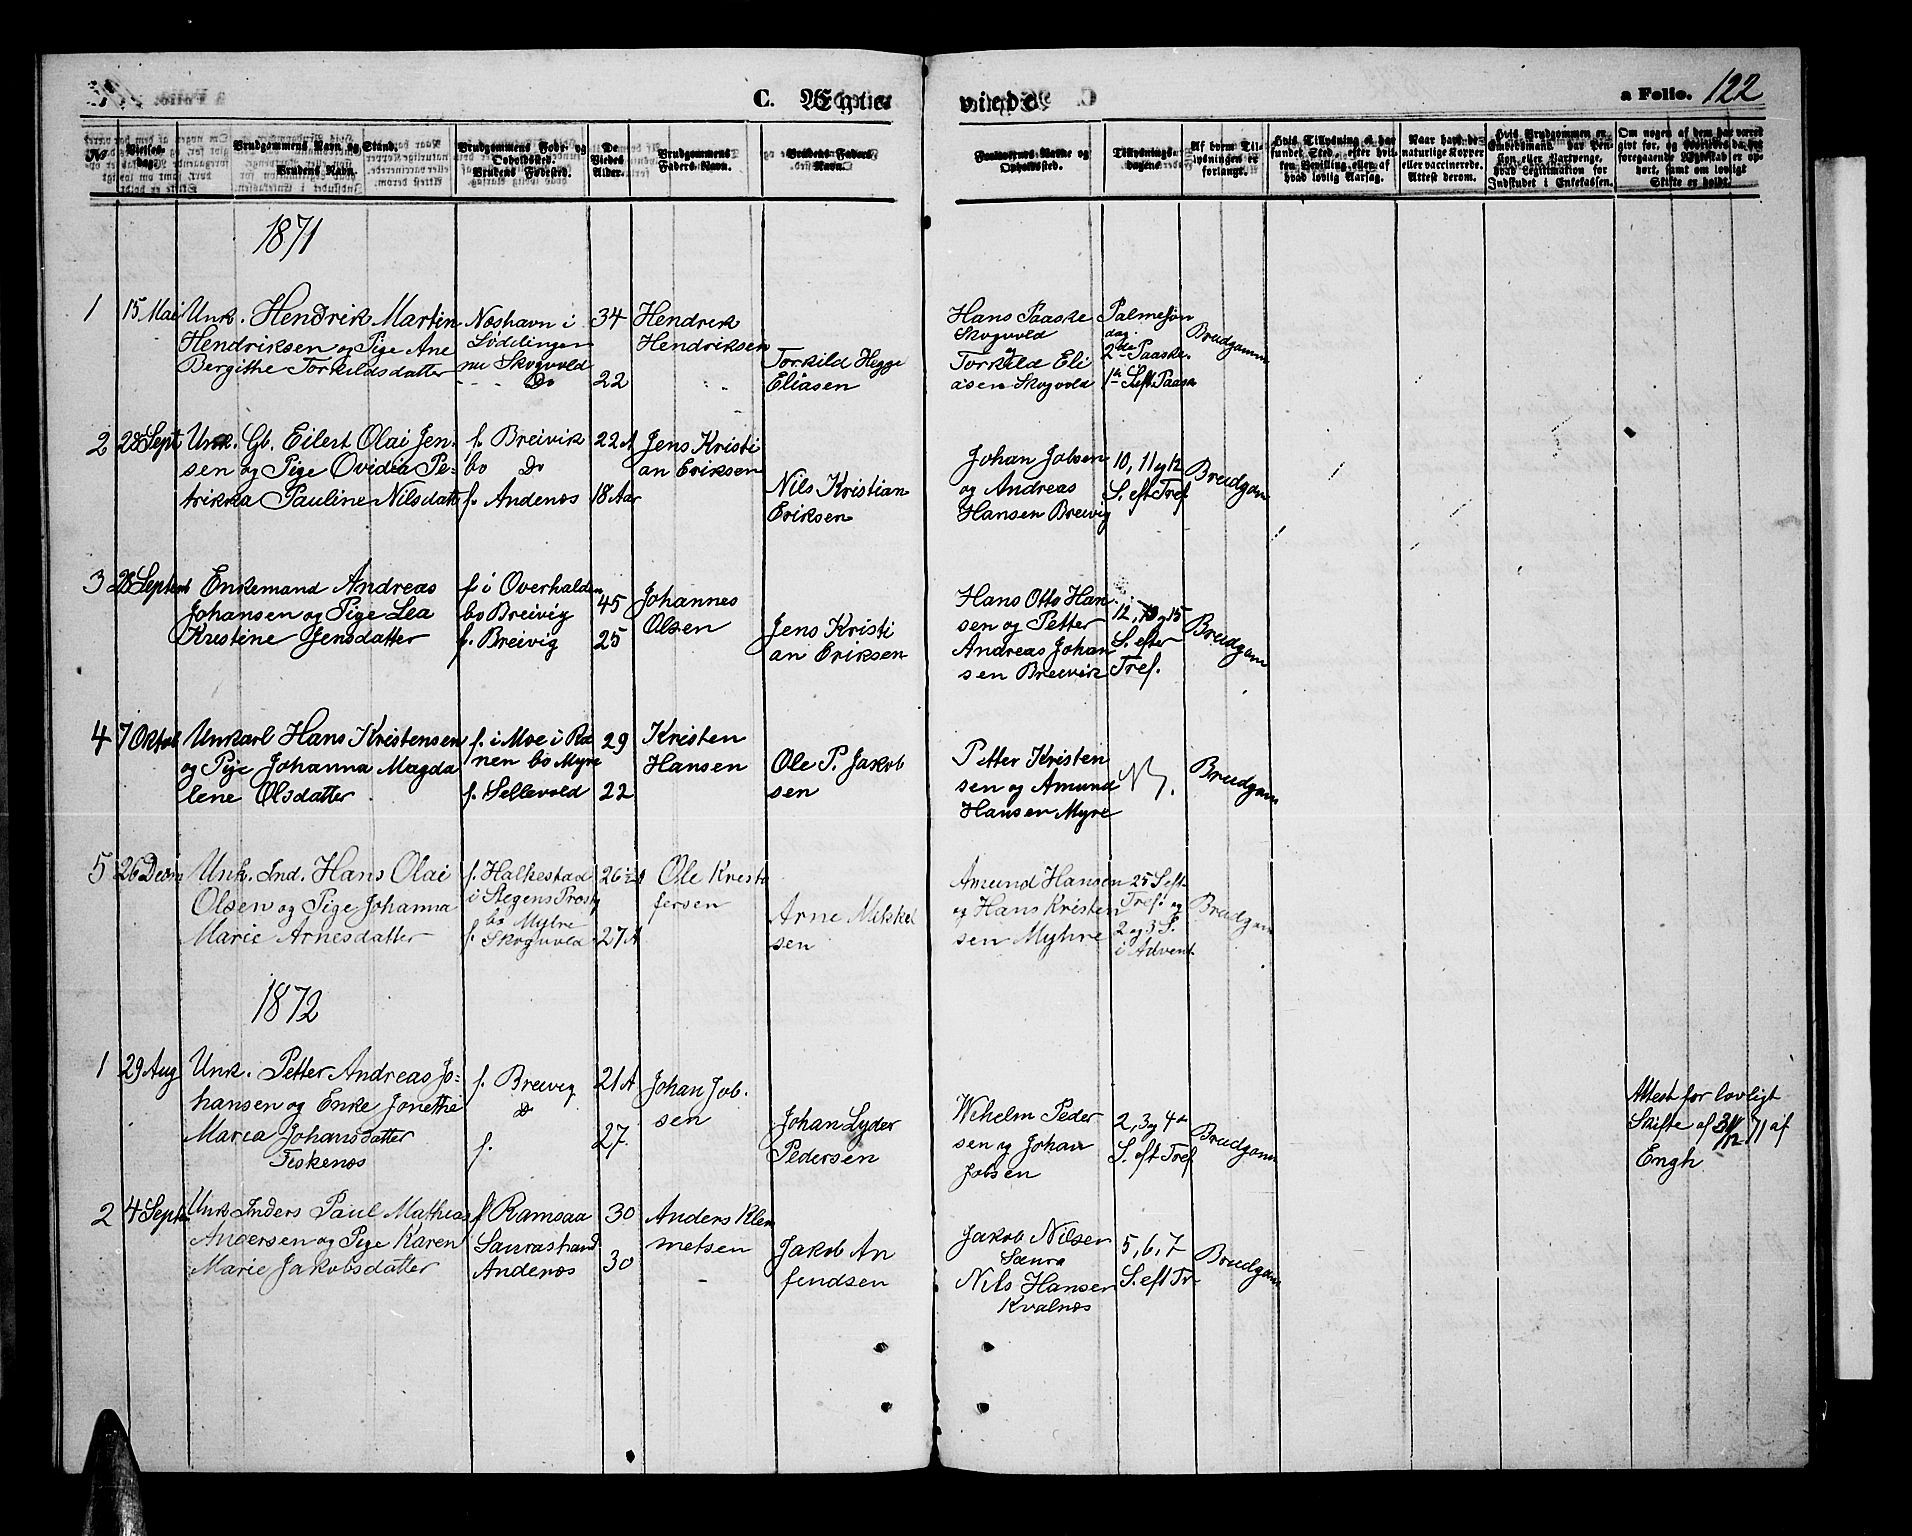 C. Ægtevidede
a Folio. 122
No
Vielses-dag.
Brudgommens Navn og Stand.
Brudens Navn.
Brudgommens Føde- og Opholdssted.
Brudens Fødested.
De Viedes Alder.
Brudgommens Faders Navn.
Brudens Faders Navn.
Forlovernes Navne og Opholdssted.
Tillysnings-dagene
Af hvem Tillysningen er forlangt.
Naar havt de naturlige Kopper eller vaccinerede. Attest derom.
1871
1
15 Mai
Unk. Hendrik Martin
Hendriksen og Pige Ane
Bergithe Torkildsdatter
Næshavn i
Lødelingen
nu Skogvold
Do
34
22
Hendrik
Hendriksen
Torkild Hegge
Eliasen
Hans Paaske
Skogvold
og
Torkild Eli
asen Skogvold
Palmesøn
dag
2den Paaske
1ste S. eft. Paaske
Brudgommen
2
28 Sept
Unk. Gb. Eilert Olai Jen-
sen og Pige Ovidia Pe-
trikka Pauline Nilsdatt
f. Breivik
bo Do
f. Andenæs
22 A
18 Aar
Jens Kristi
an Eriksen
Nils Kristian
Eriksen
Johan Jobsen
og Andreas
Hansen Breivig
10, 11 og 12
S. eft Tref.
Brudgom
3
28 Septemb
Enkemand Andreas
Johansen og Pige Lea
Kristine Jensdatter
f. i Overhalden
bo Breivig
f. Breivig
45
25
Johannes
Olsen
Jens Kristi
an Eriksen
Hans Otto Han
sen og Petter
Andreas Johan
sen Breivik
12, 13 og 15
S. efter
Tref.
Brudgom
4
7 Oktob
Unkarl Hans Kristensen
og Pige Johanna Magda
lene Olsdatter
f. i Moe i Ra
nen bo Myre
f. Sellevold
29
22
Kristen
Hansen
Ole P. Jakob
sen
Petter Kristen
sen og Amund
Hansen Myre
Brudgom
5
26 Decbr
Unk. Ind. Hans Olai
Olsen og Pige Johanna
Marie Arnesdatter
f. Halkestad
i Stegens Prestg
bo Myhre
f. Skogvold
26 1/2 A
27 A
Ole Kristo
fersen
Arne Mikkel
sen
Amund Hansen
og Hans Kristen
sen Myhre
25 S eft
Tref. og
2 og 3 S.
i Advent
Brudgom
1872
1
29 Aug
Unk. Petter Andreas Jo-
hansen og Enke Jonethe
Marea Johansdatter
Fiskenæs
f. Breivig
Do
f.
21 A
27.
Johan Job.
sen
Johan Lyder
Pedersen
Wihelm Peder
sen og Johan
Jobsen
2, 3 og 4de
S. eft Tref
Brudgom
Attest for lovligt
Skifte af 31/12 71 af
Engh
2
4 Septb
Unk Inders Paul Mathias
Andersen og Pige Karen
Marie Jakobsdatter
f Ramsaa
Saurastrand
Andenæs
30
30
Anders Klem
metsen
Jakob An
fendsen
Jakob Nilsen
Saura
Nils Hansen
Kvalnæs
5, 6, 7
S. eft Tr.
Brudgom